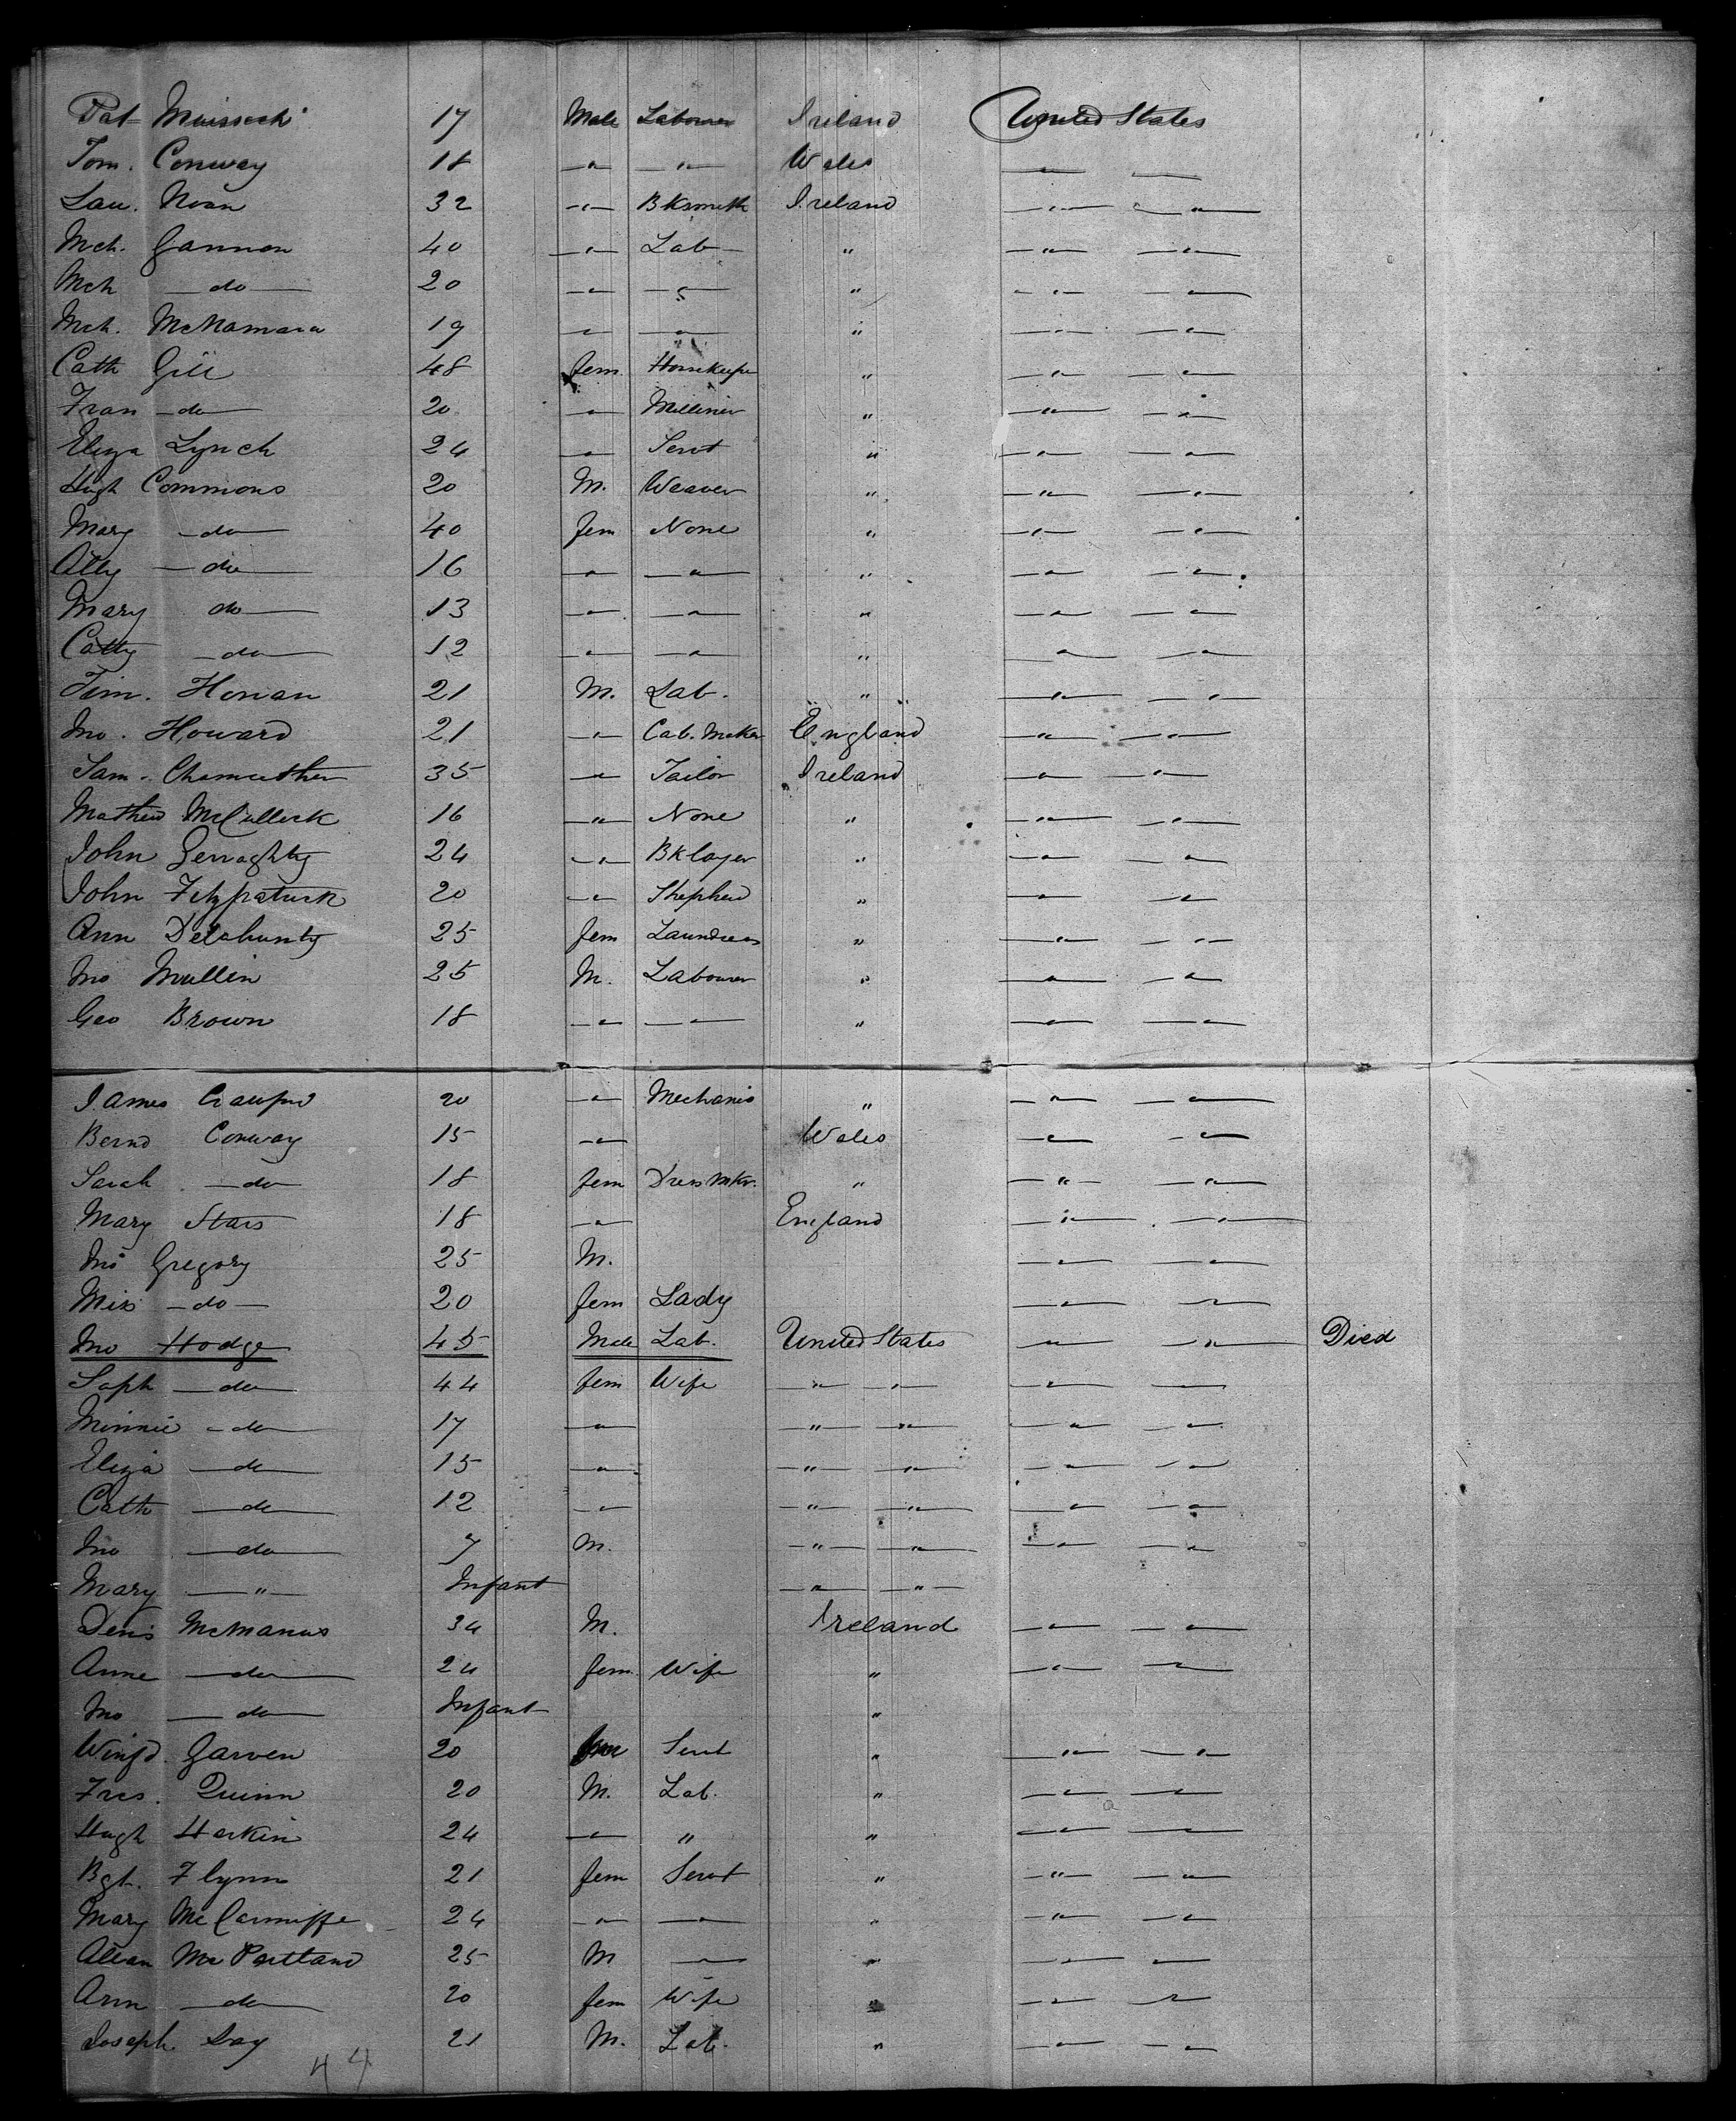 Pat 17 Male Labourer Ireland United States
Tom. Conway 18 —"— —"— Wales —"— —"—
Lau. 32 —"— Bksmith Ireland —"— —"—
Mch. Gannon 40 —"— Lab " —"— —"—
Mch —do— 20 —"— —"— " —"— —"—
Mch. McNamara 19 —"— —"— " —"— —"—
Cath Gill 48 fem. Housekeeper " —"— —"—
Fran —do— 20 —"— Milliner " —"— —"—
Eliza Lynch 24 —"— Servt " —"— —"—
Hugh Commons 20 M. Weaver " —"— —"—
Mary —do— 40 fem None " —"— —"—
—do— 16 —"— —"— " —"— —"—
Mary do— 13 —"— —"— " —"— —"—
Catty —do— 12 —"— —"— " —"— —"—
Tim. Honan 21 M. Lab. " —"— —"—
Jno. Howard 21 —"— Cab. Maker England —"— —"—
Sam. 35 —"— Tailor Ireland —"— —"—
Mathew McCullock 16 —"— None " —"— —"—
John Gerraghty 24 —"— Bklayer " —"— —"—
John Fitzpatrick 20 —"— Shepherd " —"— —"—
Ann Delahunty 25 fem Laundress " —"— —"—
Jno Mullin 25 M. Labourer " —"— —"—
Geo Brown 18 —"— —"— " —"— —"—
James 20 —"— Mechanic " —"— —"—
Bernd Conway 15 —"— Wales —"— —"—
Sarah —do— 18 fem Dress Mkr. " —"— —"—
Mary Stars 18 —"— England —"— —"—
Jno Gregory 25 M. —"— —"—
Miss —do— 20 fem Lady —"— —"—
Jno Hodge 45 Male Lab. United States —"— —"— Died
Soph —do— 44 fem Wife —"— —"— —"— —"—
Minnie —do— 17 —"— —"— —"— —"— —"—
Eliza —do— 15 —"— —"— —"— —"— —"—
Cath —do— 12 —"— —"— —"— —"— —"—
Jno —do— 7 M. —"— —"— —"— —"—
Mary —"— Infant —"— —"—
Denis McManus 34 M. Ireland —"— —"—
Anne —do— 24 fem. Wife " —"— —"—
Jno —do— Infant "
Winfd. Garven 20 fem Servt " —"— —"—
Frcs. Quinn 20 M. Lab. " —"— —"—
Hugh Harkin 24 —"— " " —"— —"—
Bgt. Flynn 21 fem Servt " —"— —"—
Mary 24 —"— —"— " —"— —"—
Allan McPartland 25 M —"— " —"— —"—
Ann —do— 20 fem Wife " —"— —"—
Joseph Day 21 M. Lab. " —"— —"—
44